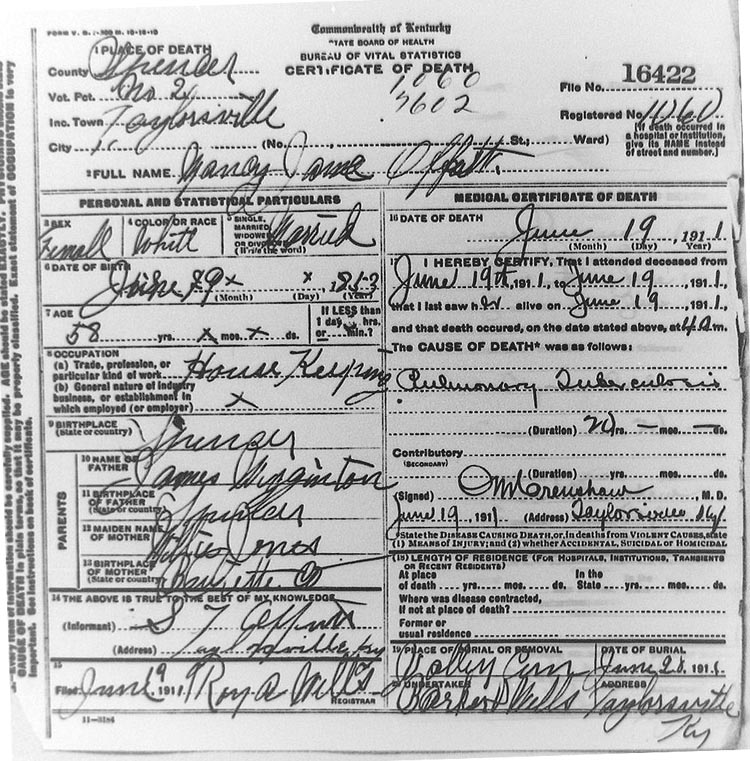 FORM V. S.
Commonwealth of Kentucky
STATE BOARD OF HEALTH
BUREAU OF VITAL STATISTICS
CERTIFICATE OF DEATH
1060
7602
File No. 16422
Registered No. 1060
[If death occurred in a hospital or institution, give its NAME instead of street and number.]
1 PLACE OF DEATH
County Spencer
Vot. Pct. No 2
Inc. Town Taylorsville
City (No. St.; Ward)
2 FULL NAME Nancy Jane
PERSONAL AND STATISTICAL PARTICULARS
3 SEX Female
4 COLOR OR RACE White
5 SINGLE, MARRIED, WIDOWED OR DIVORCED (Write the word) Married
6 DATE OF BIRTH
June x x 1853
(Month) (Day) (Year)
7 AGE
58 yrs. x mos. x ds.
If LESS than 1 day hrs. or min.?
8 OCCUPATION
(a) Trade, profession, or particular kind of work House Keeping
(b) General nature of industry business, or establishment in which employed (or employer) x
9 BIRTHPLACE
(State or country) Spencer
PARENTS
10 NAME OF FATHER James Wigginton
11 BIRTHPLACE OF FATHER (State or country) Spencer
12 MAIDEN NAME OF MOTHER Jones
13 BIRTHPLACE OF MOTHER (State or country) Co
14 THE ABOVE IS TRUE TO THE BEST OF MY KNOWLEDGE
(Informant) S T
(Address) Taylorsville Ky
15
Filed June 19 1911 Roy A Wells
REGISTRAR
11-3184
MEDICAL CERTIFICATE OF DEATH
16 DATE OF DEATH
June 19 1911
(Month) (Day) Year)
17 I HEREBY CERTIFY, That I attended deceased from
June 19th, 1911, to June 19, 1911,
that I last saw her alive on June 19, 1911,
and that death occured, on the date stated above, at 4 a m.
The CAUSE OF DEATH* was as follows:
Pulmonary Tuberculosis
(Duration) yrs. — mos. — ds.
Contributory
(SECONDARY)
(Duration) yrs. mos. ds.
(Signed) Crenshaw, M. D.
June 19, 1911 (Address) Taylorsville Ky.
*State the DISEASE CAUSING DEATH, or, in deaths from VIOLENT CAUSES, state (1) MEANS OF INJURY; and (2) whether ACCIDENTAL, SUICIDAL OR HOMICIDAL.
(18) LENGTH OF RESIDENCE (FOR HOSPITALS, INSTITUTIONS, TRANSIENTS OR RECENT RESIDENTS)
At place of death yrs. mos. ds. In the State yrs. mos. ds.
Where was disease contracted, if not at place of death?
Former or usual residence
19 PLACE OF BURIAL OR REMOVAL
Valley Cem
DATE OF BURIAL
June 1911
20 UNDERTAKER
Wells
ADDRESS
Taylorsville
Ky